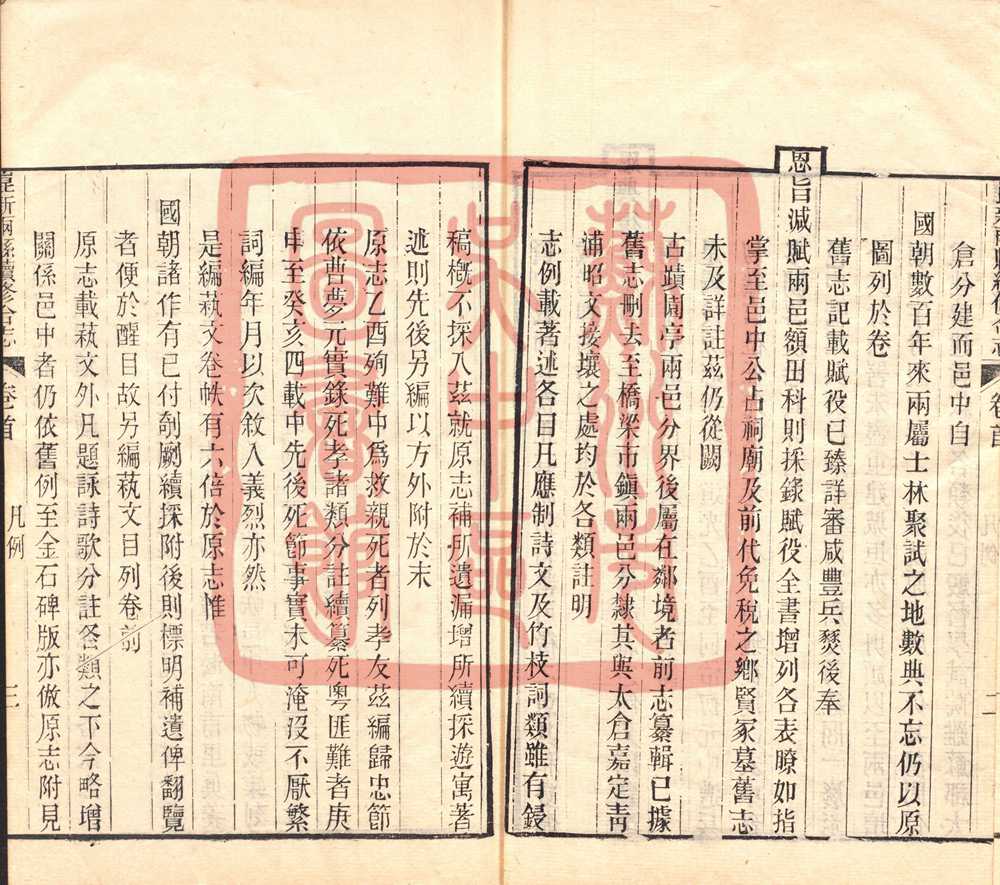 倉分建而邑中自
國朝數百年來兩屬士林聚試之地數典不忘仍以原
圖列於卷
舊志記載賦役已臻詳審咸豐兵燹後奉
恩旨減賦兩邑額田科則採錄賦役全書增列各表瞭如指
掌至邑中公占祠廟及前代免稅之鄉賢冢墓舊志
未及詳註茲仍從闕
古蹟園亭兩邑分界後屬在鄰境者前志纂輯已據
舊志刪去至橋梁市鎮兩邑分隸其與太倉嘉定靑
浦昭文接壤之處均於各類註明
志例載著述各目凡應制詩文及竹枝詞類雖有鋟
稿槪不採入茲就原志補所遺漏增所續採遊寓著
述則先後另編以方外附於末
原志乙酉殉難中爲救親死者列孝友茲編歸忠節
依曹夢元實錄死孝諸類分註續纂死粵匪難者庚
申至癸亥四載中先後死節事實未可淹沒不厭繁
詞編年月以次敘入義烈亦然
是編蓺文卷帙有六倍於原志惟
國朝諸作有已付剞劂續採附後則標明補遺俾翻覽
者便於醒目故另編蓺文目列卷前
原志載蓺文外凡題詠詩歌分註各類之下今略增
關係邑中者仍依舊例至金石碑版亦倣原志附見
崑新兩縣續修合志
卷首
凡例
三